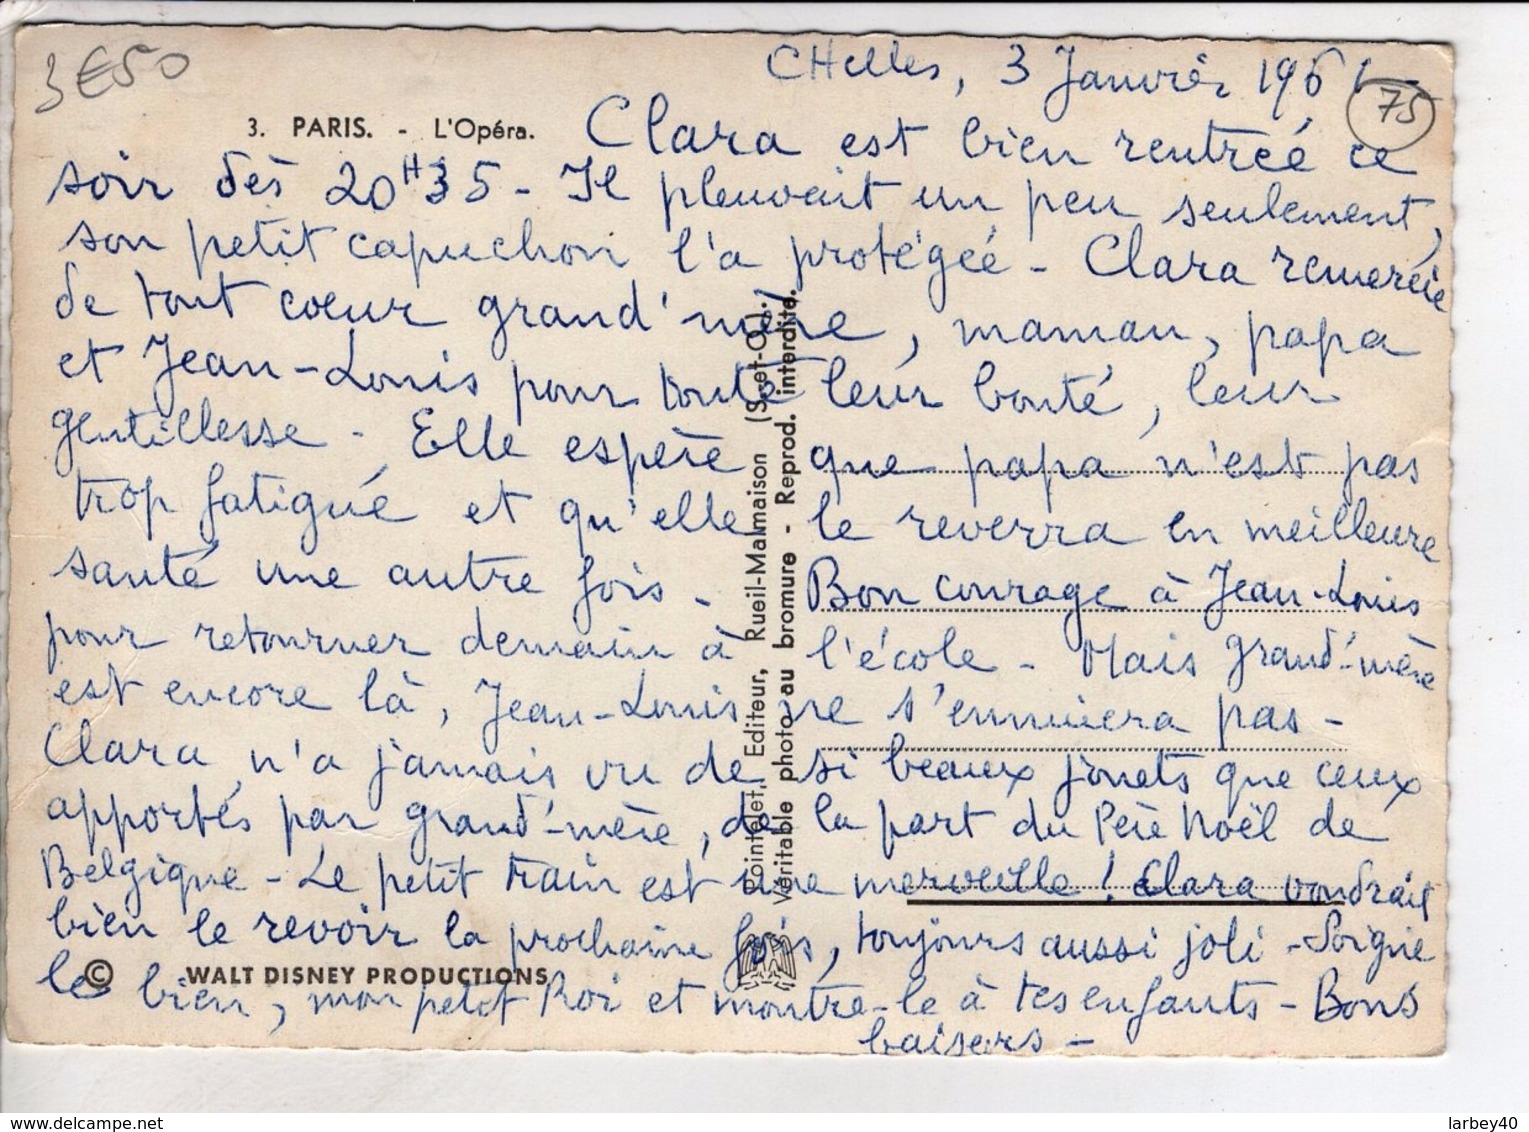 3€50
CHelles, 3 Janvier 1961
75
3. PARIS. - L'Opéra.
Clara est bien rentrée ce
soir dès 20H35 - Il pleuvait un peu seulement,
son petit capuchon l'a protégée - Clara remercie
de tout coeur grand'mère, maman, papa
et Jean-Louis pour toute leur bonté, leur
gentillesse - Elle espère que papa n'est pas
trop fatigué et qu'elle le reverra en meilleure
santé une autre fois - Bon courage à Jean-Louis
pour retourner demain à l'école - Mais grand'-mère
est encore là, Jean-Louis ne s'ennuiera pas -
Clara n'a jamais vu de si beaux jouets que ceux
apportés par grand'-mère, de la part du Père Noël de
Belgique - Le petit train est une merveille ! Clara voudrait
bien le revoir la prochaine fois, toujours aussi joli - Soigne
le bien, mon petit Roi et montre-le à tes enfants - Bons
baisers -
© WALT DISNEY PRODUCTIONS
Pointelet, Editeur, Rueil-Malmaison (S.-et-O.).
Véritable photo au bromure - Reprod. interdite.
larbey40